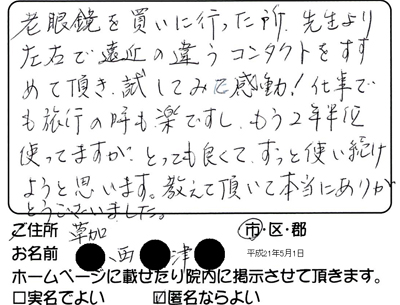 老眼鏡を買いに行った所、先生より
左右で遠近の違うコンタクトをすす
めて頂き、試してみて感動！仕事で
も旅行の時も楽ですし、もう2年半位
使ってますが、とっても良くて、ずっと使い続け
ようと思います。教えて頂いて本当にありが
とうございました。
ご住所 草加 市・区・郡
お名前 西 津 平成21年5月1日
ホームページに載せたり院内に掲示させて頂きます。
□実名でよい ☑匿名ならよい